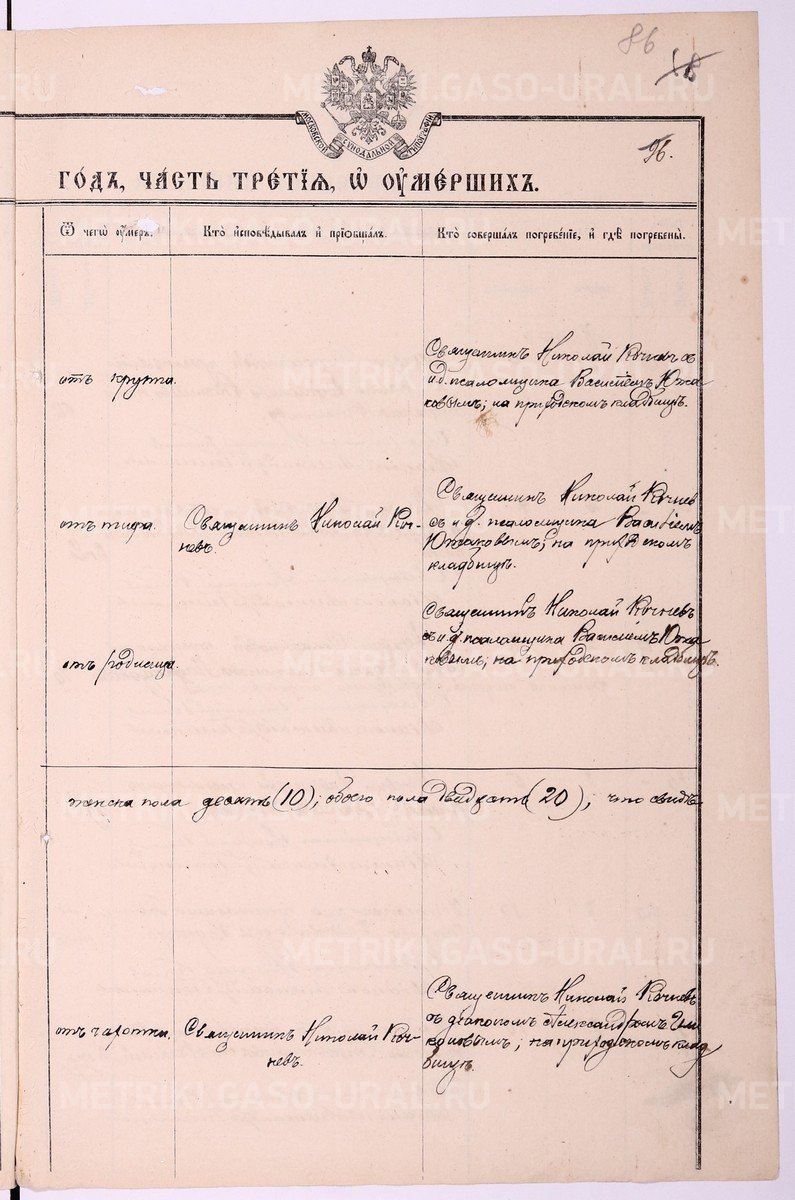 86
18
96.
МОСКОВСКОЙ СѴНОДАЛЬНОЙ ТИПОГРАФІИ
ГО́ДЪ, ЧА́СТЬ ТРЕ́ТІѦ, Ѡ҆ ОУ҆МЕ́РШИХЪ.
Ѿ чегѡ̀ оу҆́меръ.
Кто̀ и҆сповѣ́дывалъ и҆ прїѡбща́лъ.
Кто̀ соверша́лъ погребе́нїе, и҆ гдѣ̀ погребены̀.
отъ крупа.
Священникъ Николай Кочневъ съ
и.д. псаломщика Василіемъ Южа
ковымъ; на приходскомъ кладбищѣ.
отъ тифа.
Священникъ Николай Коч-
невъ.
Священникъ Николай Кочнев
съ и.д. псаломщика Василіемъ
Южаковымъ; на приходскомъ
кладбищѣ.
отъ родимца.
Священникъ Николай Кочневъ
съ и.д. псаломщика Василіемъ Южа
ковымъ; на приходскомъ кладбищѣ.
женска пола десять (10); обоего пола двадцать (20); что свидѣ
отъ чахотки.
Священникъ Николай Коч-
невъ.
Священникъ Николай Кочневъ
съ діакономъ Александромъ
; на приходскомъ клад
бищѣ.
METRIKI.GASO-URAL.RU